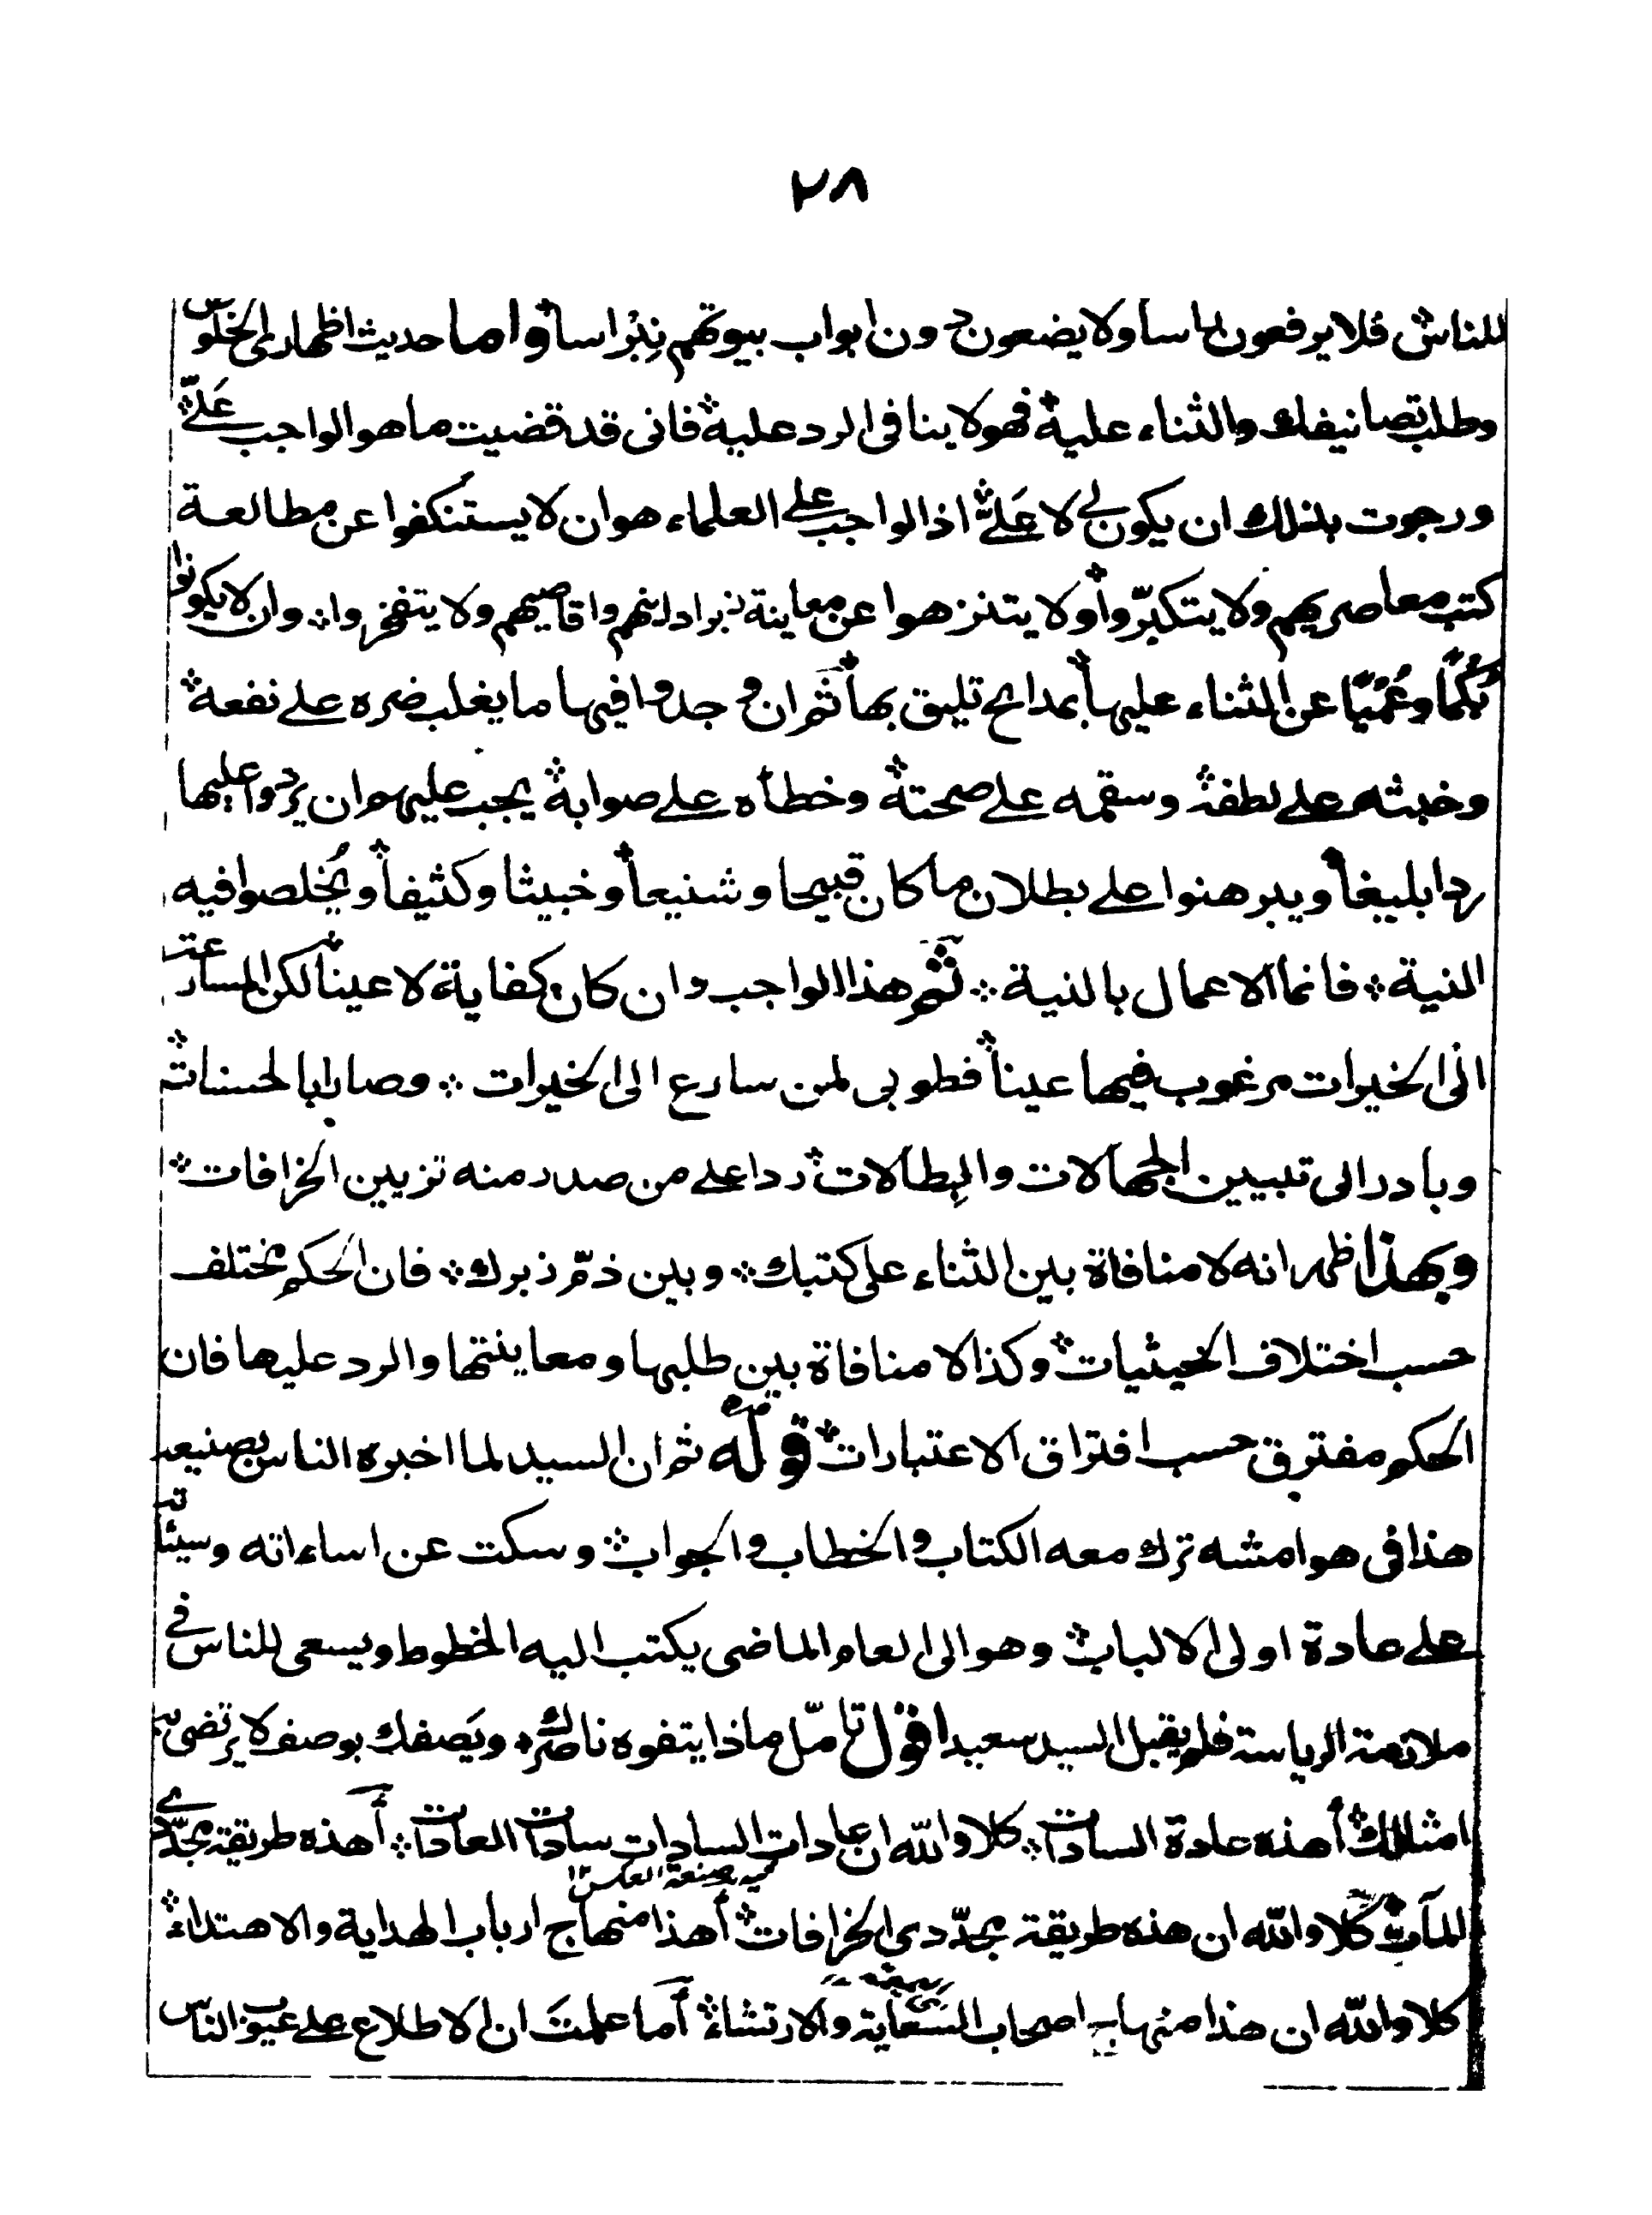 ٢٨
للناس فلا يرفعون لها سا ولا يضعون دون ابواب بيوتهم نِبْراسا واما حديث اظهاري الخلوص
وطلب تصانيفك والثناء عليه فهو لا ينافى الرد عليه فانى قد قضيت ما هو الواجب عَلَىَّ
ورجوت بذلك ان يكون لى لا عَلَىَّ اذ الواجب على العلماء هو ان لا يستنكفوا عن مطالعة
كتب معاصريهم ولا يتكبّروا ولا يتنزهوا عن معاينة زبر ادانيهم واقاصيهم ولا يتفخروا وان لا يكونوا
بُكْمًا وعُمْيًا عن الثناء عليها بمدايح تليق بها ثم ان وجدوا فيها ما يغلب ضره على نفعه
وخبثه على لطفه وسقمه على صحته وخطأه على صوابه يجب عليهم ان يردوا عليها
ردا بليغا ويبرهنوا على بطلان ما كان قبيحا وشنيعا وخبيثا وكثيفا ويُخلصوا فيه
النية فانما الاعمال بالنية ثم هذا الواجب وان كان كفاية لا عينا لكن المسارعة
الى الخيرات مرغوب فيها عينا فطوبى لمن سارع الى الخيرات وصار بالحسنات
وبادر الى تبيين الجهالات والبطالات ردا على من صدر منه تزيين الخرافات
وبهذا ظهر انه لا منافاة بين الثناء على كتبك وبين ذمّ زبرك فان الحكم مختلف
حسب اختلاف الحيثيات وكذا لا منافاة بين طلبها ومعاينتها والرد عليها فان
الحكم مفترق حسب افتراق الاعتبارات قوله ثم ان السيد لما اخبره الناس بصنيعه
هذا فى هوامشه ترك معه الكتاب والخطاب والجواب وسكت عن اساءاته وسيئاته
على عادة اولى الالباب وهو الى العام الماضى يكتب اليه الخطوط ويسعى للناس فى
ملازمة الرياسة فلم يقبل السيد سعيه اقول تامّل ماذا يتفوه ناصرك ويَصفك بوصف لا يرتضى به
امثالك أهذه عادة السادات كلا والله ان عادات السادات سادات العادات أهذه طريقة مجدّدى
المآت كلا والله ان هذه طريقة مجدّدى الخرافات أهذا منهاج ارباب الهداية والاهتداء
كلا والله ان هذا منهاج اصحاب السعاية والارتشاء أما علمتَ ان الاطلاع على عيوب الناس